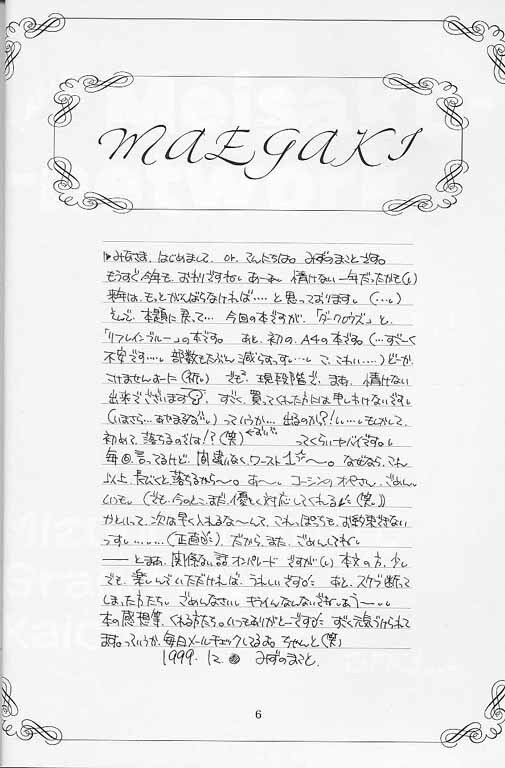 MAEGAKI
みなさま、はじめまして。or. こんにちは。みずのまことです。
もうすぐ今年も、おわりですねし。あーあ、情けない一年だったかも(し)
来年は、もっとがんばらなければ‥‥と思っております。(‥‥し)
そんで、本題に戻って… 今回の本ですが、「ダークロウズ」と、
「リフレインブルー」の本です。 あと、初の、A4の本です。(…すごーく
不安です‥‥。部数もたぶん、減らすっす…し こ、こわい‥‥)どーか、
こけませんよーに(祈し) でも、現段階で、まあ、情けない
出来でございます?。 すごく、買ってくれた方には申しわけないです。
(いまさら…あやまるなし) っていうか…出るのか?!し‥。もしかして、
初めて、落ちるのでは!?(笑) ってくらいヤバイです。
毎回、言ってるけど、間違いなく、ワースト1〜。なぜなら、これ
以上、長びくと落ちるから〜。あー。コーシンのオヤさん、ごめん。
いつも。(でも、今のとこ、まだ、優しく対応してくれる(笑))
かといって、次は早く入れるな〜んて、これっぽっちも、お約束できない
っす‥‥‥。(正直) だから、また、ごめんしてね。
――とまあ、関係ない話オンパレードですが(し) 本文の方、少し
でも、楽しんでいただければ、うれしいです。 あと、スケブ断って
しまった方たち。ごめんなさい。
本の感想等、くれる方たち。いつもありがとーです。すごく元気づけられて
ます。っていうか、毎日メールチェックしてるよ。ちゃんと(笑)
1999. 12. みずのまこと.
6